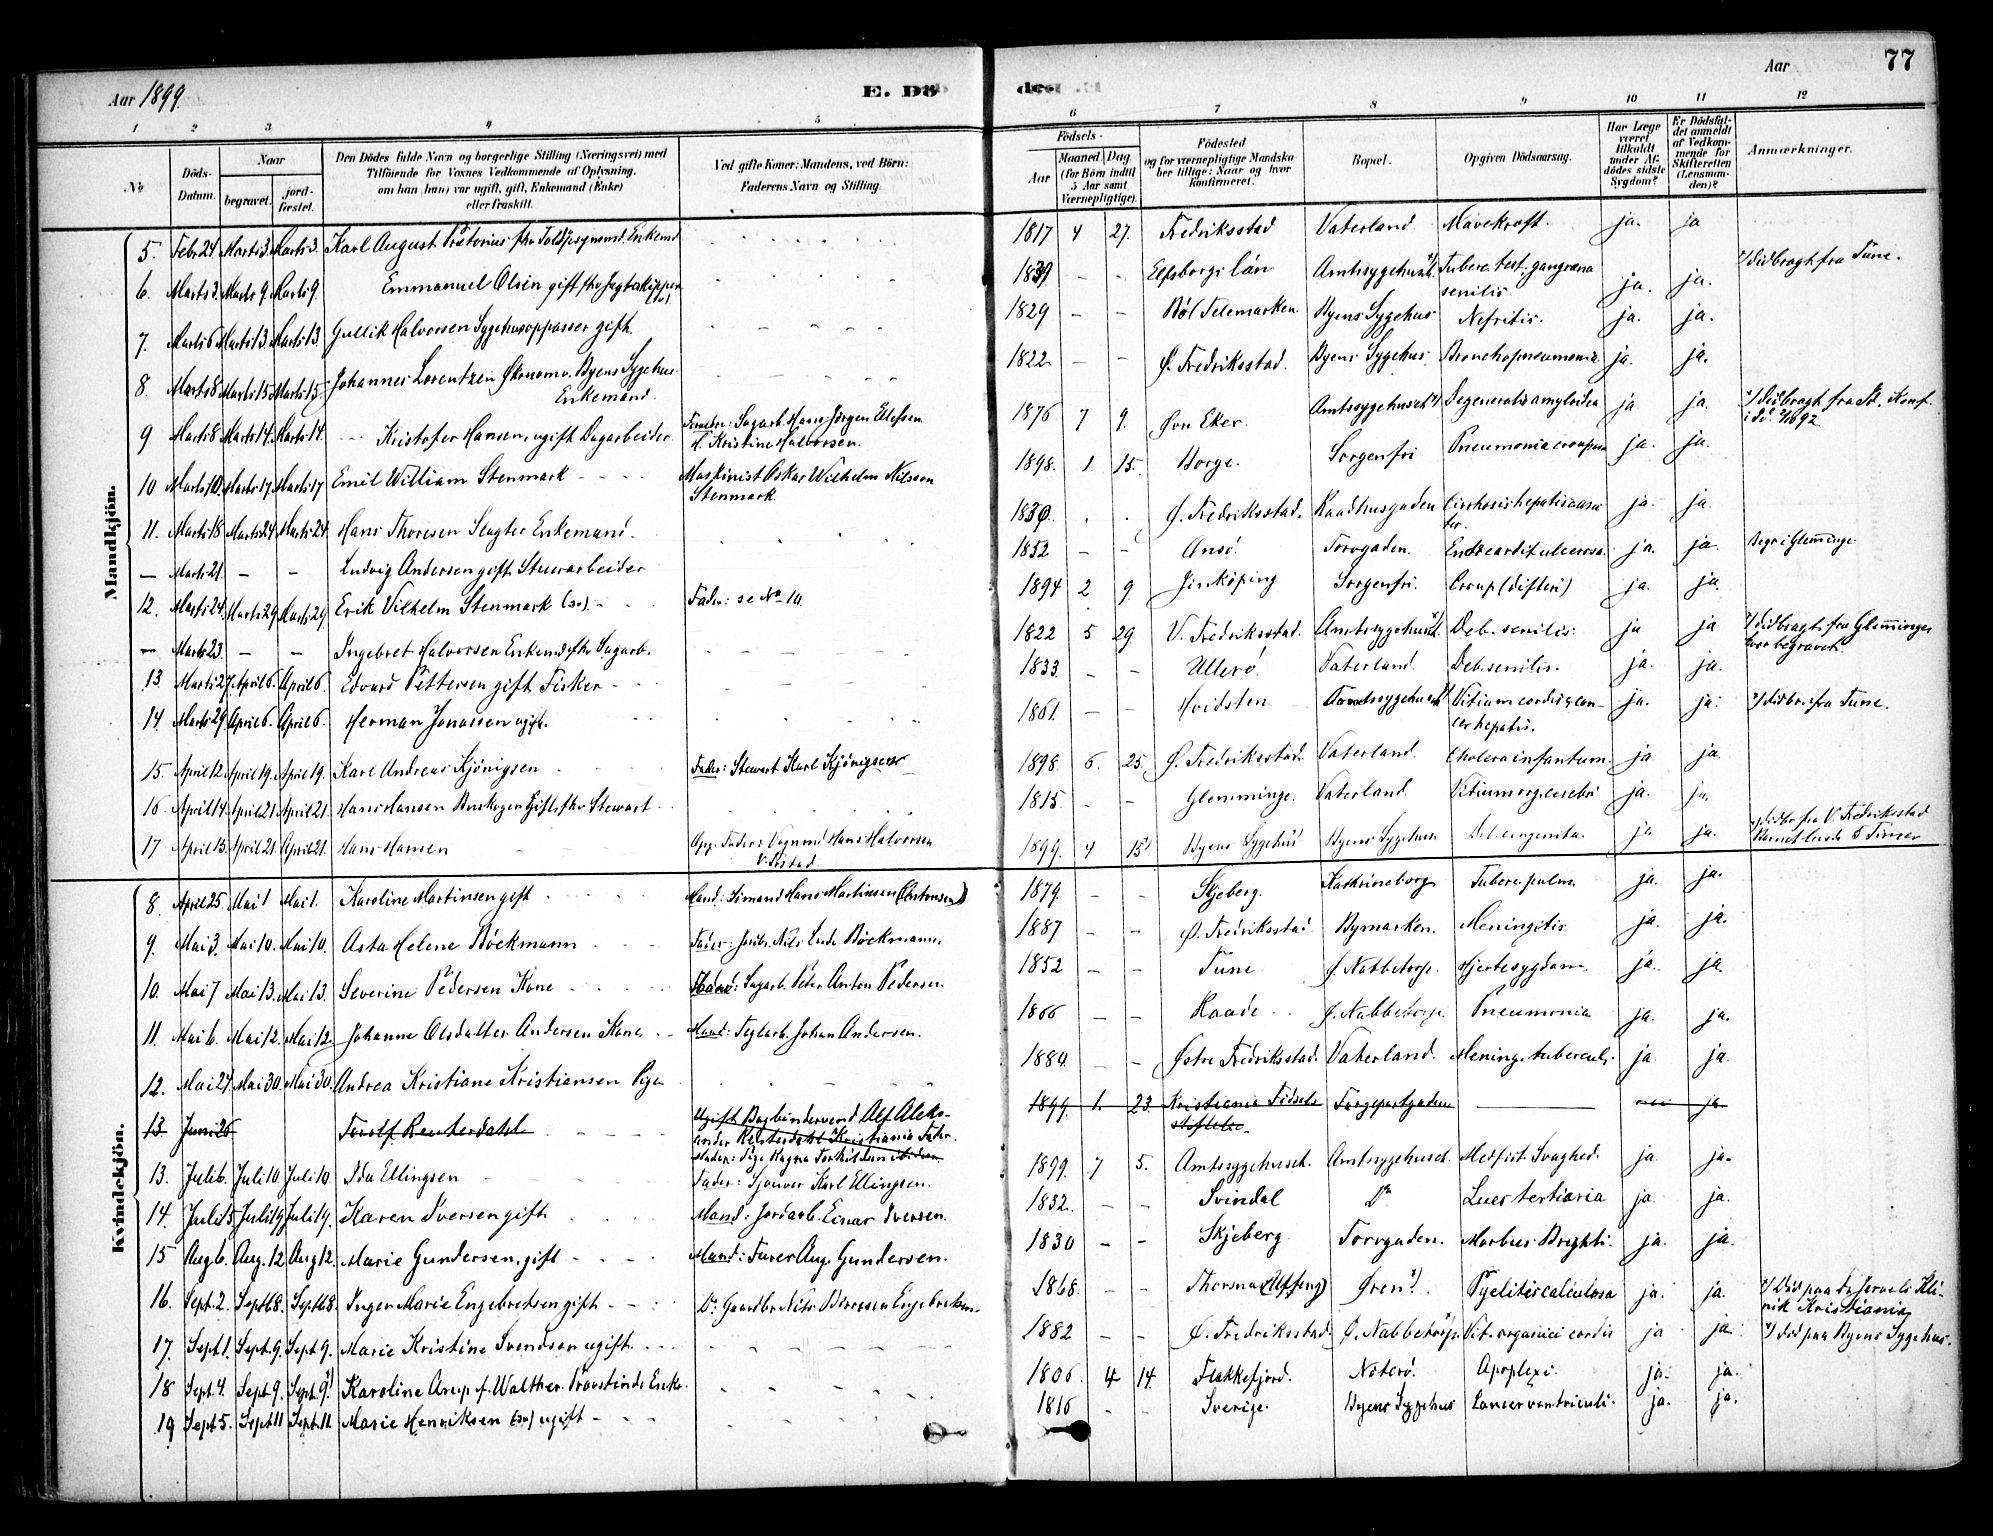 77
Aar 1899. E. Dö
deø Aar
1 2 3 4 5
6 7 8 9 10 11 12
№ Döds-Datum. Naar begravet. jord-fæstet. Den Dödes fulde Navn og borgerlige Stilling (Næringsvei) med Tilföiende for Voxnes Vedkommende af Oplysning, om han (hun) var ugift, gift, Enkemand (Enke) eller fraskilt. Ved gifte Koner: Mandens, ved Börn: Faderens Navn og Stilling.
Födsels- Aar Maaned Dag. (for Börn indtil 5 Aar samt Værnepligtige). Födested og for værnepligtige Mandskaber tillige: Naar og hvor konfirmeret. Bopæl. Opgiven Dödsaarsag. Har Læge været tilkaldt under Afdödes sidste Sygdom? Er Dödsfaldet anmeldt af Vedkommende for Skifteretten (Lensmanden)? Anmærkninger.
Mandkjön.
5. Febr 24 Marts 3. Marts 3. Karl August Prætorius Enkemd 1817 4 27. Fredriksstad Vaterland. Mavekræft. ja. ja
6. Marts 3. Marts 9. Marts 9. Emmanuel Olsen gift fhv Jagtskipper 1839 - - Elfsborgs län Amtssygehuset gangræna senilis ja. ja. Tune.
7. Marts 6 Marts 13. Marts 13. Gullik Halvorsen Sygehusoppasser gift. 1829 - - Bö (Telemarken. Byens Sygehus Nefritis. ja. ja.
8. Marts 8 Marts 15 Marts 15 Johannes Lorentzen Økonom v. Byens Sygehus Enkemand. 1822 - - Ø. Fredriksstad. Byens Sygehus. Bronchopneumonia. ja. ja.
9 Marts 8 Marts 14. Marts 14. Kristofer Hansen, ugift Dagarbeider Sagarb. Hans Jörgen H. Kristine Halvorsen. 1876 7 9. Øvn Eker. Amtssygehuset Degeneratio amyloidea ja ja.
10 Marts 10. Marts 17. Marts 17 Emil William Stenmark Maskinist Oskar Wilhelm Nilsson Stenmark 1898. 1. 15. Borge. Sorgenfri Pneumonia crouposa ja. ja.
11. Marts 18 Marts 24 Marts 24. Hans Thoresen Slagter Enkemand. 1830. Ø. Fredriksstad. Raadhusgaden Cirrhosis hepatis ja. ja.
- Marts 21. - - Ludvig Andersen gift Stuearbeider 1852 - - Onsö. Torvgaden. Endocardit ulcerosa. ja. ja. Begr i Glemminge.
12. Marts 24. Marts 29 Marts 29 Erik Vilhelm Stenmark Fader: se No 10. 1894 2 9. Jinköping Sorgenfri. Croup (difteri) ja. ja.
- Marts 23. - - Ingebret Halvorsen Enkemd fhv Sagarb. 1822 5 29 V. Fredriksstad. Amtssygehuset. Deb. senilis. ja ja Glemminge, hvor begravet.
13. Marts 27. April 6. April 6. Edvard Pettersen gift Fisker 1833. - - Ullerö. Vaterland. Deb. senilis. ja. ja.
14. Marts 29. April 6. April 6. Herman Jonassen ugift. 1861. - - Hvidsten Amtssygehuset Vitium cordis & cancer hepatis. ja. ja. fra Tune.
15. April 12. April 19. April 19. Karl Andreas Kjönigsen Fader: Stewart Karl Kjönigsen 1898. 6. 25. Ø. Fredriksstad. Vaterland. Cholera infantum. ja ja
16 April 14. April 21. April 21. Hans Hansen Buskogen Gift fhv Stewart 1815. - - Glemminge. Vaterland. Vitium org. cerebri ja. ja.
17 April 15. April 21. April 21. Hans Hansen Opg. Fader: Vognmd Hans Halvorsen 1899. 4 15 Byens Sygehus Byens Sygehus. Deb. congenita. ja ja. fra V. Fredriksstad Barnet levde 5 Timer
Kvindekjön.
8. April 25. Mai 1 Mai 1. Karoline Martinsen gift Mand: Sömand Hans Martinsen (Antonsen) 1879. - - Skjeberg. Kathrineborg Tuberc. pulm. ja. ja.
9. Mai 3. Mai 10. Mai 10. Asta Helene Böckmann Fader: Nils Böckmann. 1887 - - Ø. Fredriksstad Bymarken. Meningitis ja. ja.
10. Mai 7 Mai 13. Mai 13. Severine Pedersen Kone Mand: Sagarb. Peter Anton Pedersen. 1852 - - Tune Ø. Nabbetorp. Hjertesygdom. ja. ja.
11. Mai 6. Mai 12. Mai 12. Johanne Olsdatter Andersen Kone Mand: Teglarb. Johan Andersen. 1866 - - Raade Ø. Nabbetorp. Pneumonia ja. ja.
12. Mai 24 Mai 30. Mai 30. Andrea Kristiane Kristiansen Pige 1884. - - Östre Fredriksstad. Vaterland. Mening. tubercul. ja ja.
13 Juni 26 Torolf Reuterdahl Ugift Bogbindersvend Alf Aleksander Reuterdahl Kristiania Pige Ragna Torkildsen 1899. 1. 23. Kristiania Födselsstiftelse. nei ja
13. Juli 6. Juli 10. Juli 10 Ida Ellingsen Fader: Karl Ellingsen. 1899. 7 5. Amtssygehuset. Amtssygehuset. Medfödt Svaghed. ja ja.
14. Juli 15 Juli 19 Juli 19. Karen Iversen gift Mand: Jordarb. Einar Iversen. 1832. - - Svindal Do Lues tertiaria ja ja.
15 Aug 6. Aug. 12 Aug 12. Marie Gundersen, gift Mand: Furer Aug. Gundersen. 1830 - - Skjeberg Torvgaden. Morbus Brighti. ja. ja.
16. Sept. 2. Sept 8. Sept 8. Inger Marie Engebretsen gift Do Gaardbr Nils Engebretsen. 1868. - - Øren Pyelitis calculosa ja. ja. Död paa Klinik Kristiania
17. Sept 1. Sept. 9. Sept 9. Marie Kristine Svendsen ugift. 1882 - - Ø. Fredriksstad Ø. Nabbetorp. Vit. organici cordis ja ja. död paa Byens Sygehus.
18 Sept. 4. Sept 9. Sept. 9. Karoline Arup f. Walther. Provstinde Enke. 1806. 4 14. Flekkefjord. Noterö. Apoplexi. ja. ja.
19 Sept 5. Sept 11 Sept. 11. Marie Henriksen ugift 1816 - - Sverige. Byens Sygehus Cancer ventriculi. ja. ja.